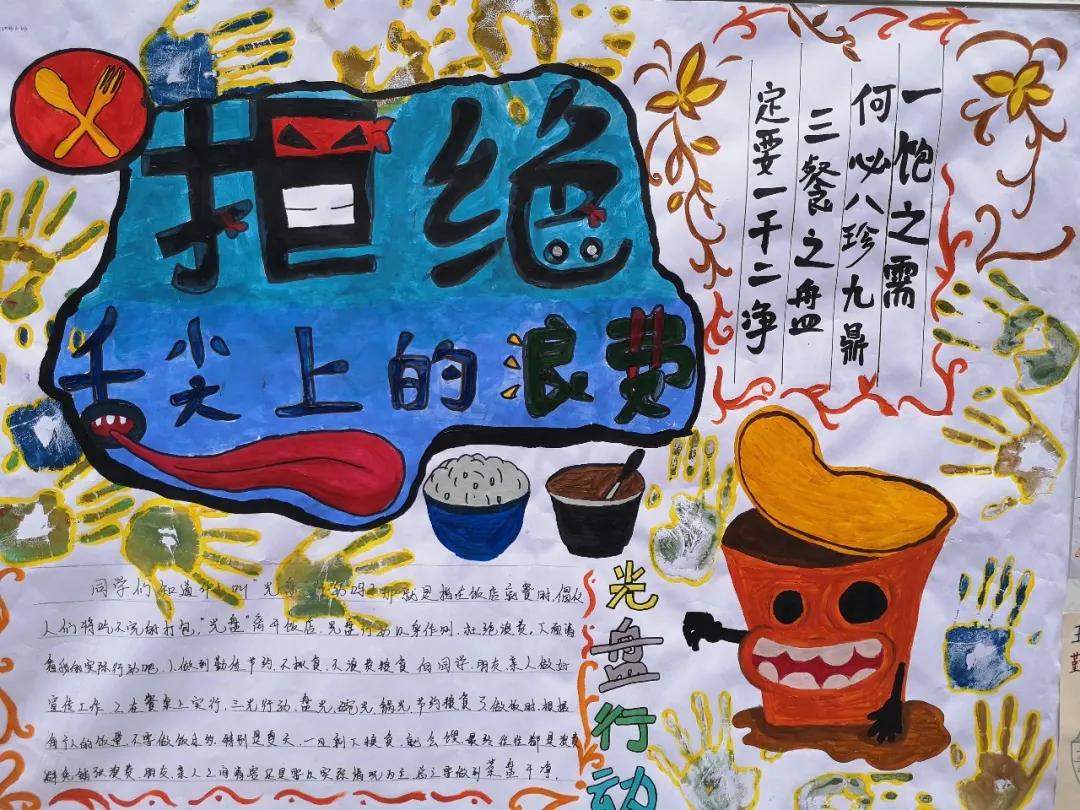 拒绝
舌尖上的浪费
一饱之需
何必八珍九鼎
三餐之盘
定要一干二净
光盘行动
同学们知道什么叫"光盘行动吗？那就是指在饭店就餐时，倡议
人们将吃不完的打包，"光盘"离开饭店，光盘行动从身作则，杜绝浪费，下面请
看我的实际行动吧，1、做到勤俭节约，不挑食，不浪费粮食，向同学、朋友、亲人做好
宣传工作 2、在餐桌上实行，三光行动，盘光，碗光，锅光，节约粮食 3、做饭时，根据
每个人的饭量，不要做饭过多，特别是夏天，一旦剩下粮食，就会馊，最终往往都是浪费
避免铺张浪费，朋友、亲人之间请客只是要以实际情况为主，总之要做到菜盘干净。